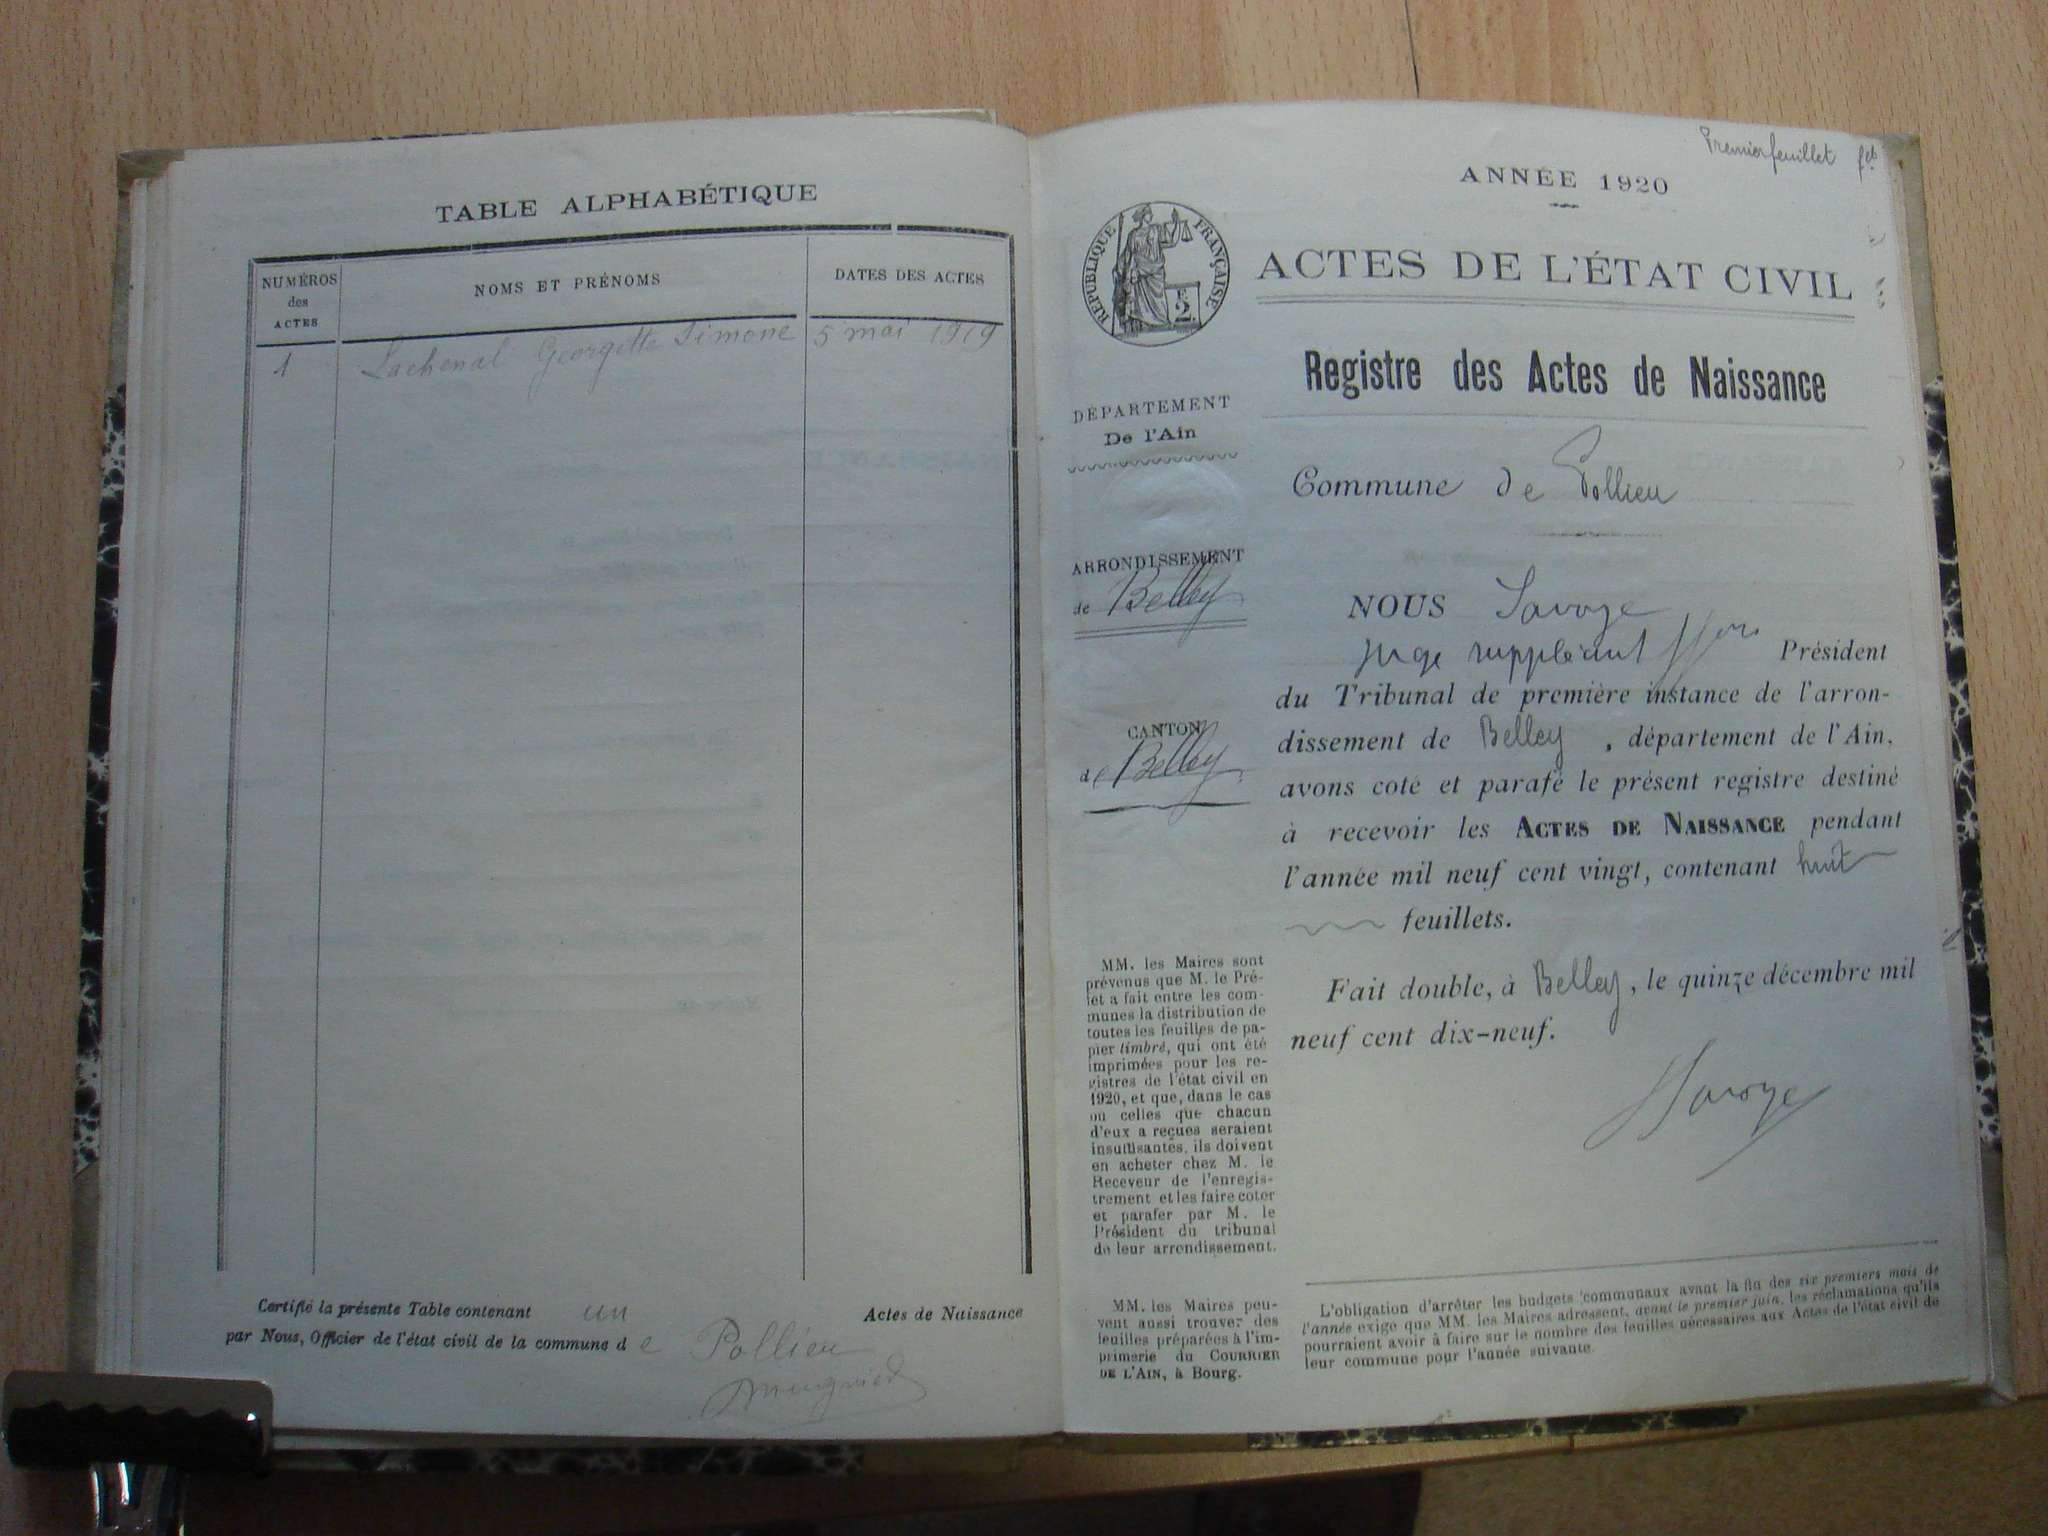 TABLE ALPHABÉTIQUE
NUMÉROS des ACTES
NOMS ET PRÉNOMS
DATES DES ACTES
1 Lachenal Georgette Simone 5 mai 1919
Certifié la présente Table contenant un Actes de Naissance
par Nous, Officier de l'état civil de la commune de Pollieu
Premier feuillet
ANNÉE 1920
RÉPUBLIQUE FRANÇAISE
E.
2.
ACTES DE L'ÉTAT CIVIL
Registre des Actes de Naissance
DÉPARTEMENT
De l'Ain
Commune de Pollieu
ARRONDISSEMENT
de Belley
CANTON
de Belley
NOUS Savoye
Juge suppléant Président
du Tribunal de première instance de l'arron-
dissement de Belley, département de l'Ain,
avons coté et parafé le présent registre destiné
à recevoir les ACTES DE NAISSANCE pendant
l'année mil neuf cent vingt, contenant huit
feuillets.
Fait double, à Belley, le quinze décembre mil
neuf cent dix-neuf.
Savoye
MM. les Maires sont
prévenus que M. le Pré-
fet a fait entre les com-
munes la distribution de
toutes les feuilles de pa-
pier timbré, qui ont été
imprimées pour les re-
gistres de l'état civil en
1920, et que, dans le cas
où celles que chacun
d'eux a reçues seraient
insuffisantes, ils doivent
en acheter chez M. le
Receveur de l'enregis-
trement et les faire coter
et parafer par M. le
Président du tribunal
de leur arrondissement.
MM. les Maires peu-
vent aussi trouver des
feuilles préparées à l'im-
primerie du COURRIER
DE L'AIN, à Bourg.
L'obligation d'arrêter les budgets communaux avant la fin des six premiers mois de
l'année exige que MM. les Maires adressent, avant le premier juin, les réclamations qu'ils
pourraient avoir à faire sur le nombre des feuilles nécessaires aux Actes de l'état civil de
leur commune pour l'année suivante.